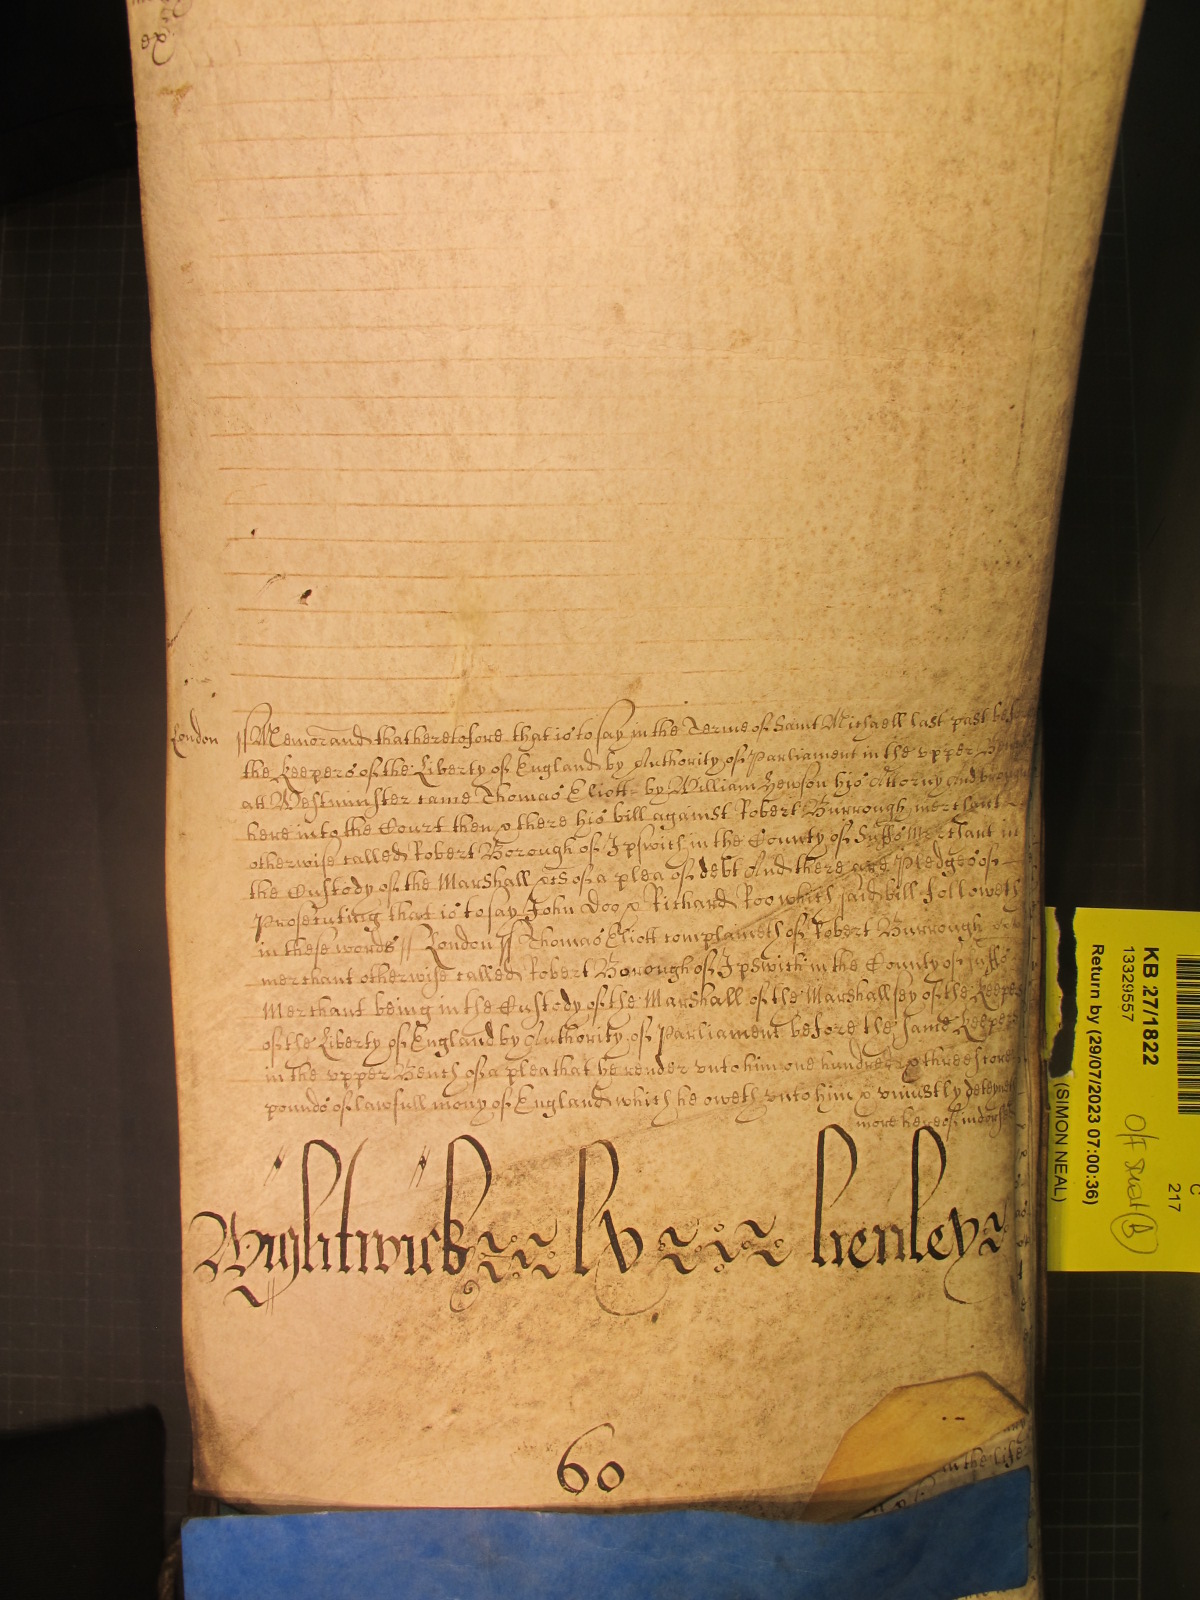 London
Memorand that heretofore that is to say in the Terme of Saint Michaell last past before
the Keepers of the Liberty of England by Authority of Parliament in the upper Bench
att Westminster came Thomas Eliott by William Hewson his Attorny And brought
here into the Court then & there his bill against Robert Burrough merchant
otherwise called Robert Borough of Ipswich in the County of Suff Merchant in
the Custody of the Marshall &c of a plea of debt And there are Pledges of
Prosecuting that is to say John Doo & Richard Roo which said bill followeth
in these words // London ss Thomas Eliott complaineth of Robert Burrough
merchant otherwise called Robert Borough of Ipswich in the County of Suff
Merchant being in the Custody of the Marshall of the Marshallsey of the Keepers
of the Liberty of England by Authority of Parliament before the same Keepers
in the upper Bench of a plea that he render unto him one hundred & threescore
pounds of lawfull mony of England which he oweth unto him & uniustly deteyneth
more hereof indorsed
Wightwick lv henley
60
in the life
KB 27/1822
13329557
Return by (29/07/2023 07:00:36)
(SIMON NEAL)
C
217